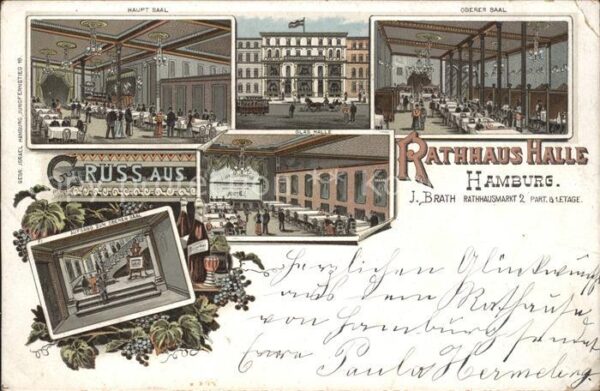 HAUPT SAAL
OBERER SAAL
GEBR. ISRAEL HAMBURG, JUNGFERNSTIEG 16.
GLAS HALLE
GRUSS AUS
RATHHAUS HALLE
HAMBURG.
J. BRATH RATHHAUSMARKT 2, PART. & 1. ETAGE.
AUFGANG ZUM OBEREN SAAL
Herzlichen Glückwunsch
aus dem Rathause
von Hamburg sendet
Eure Paula